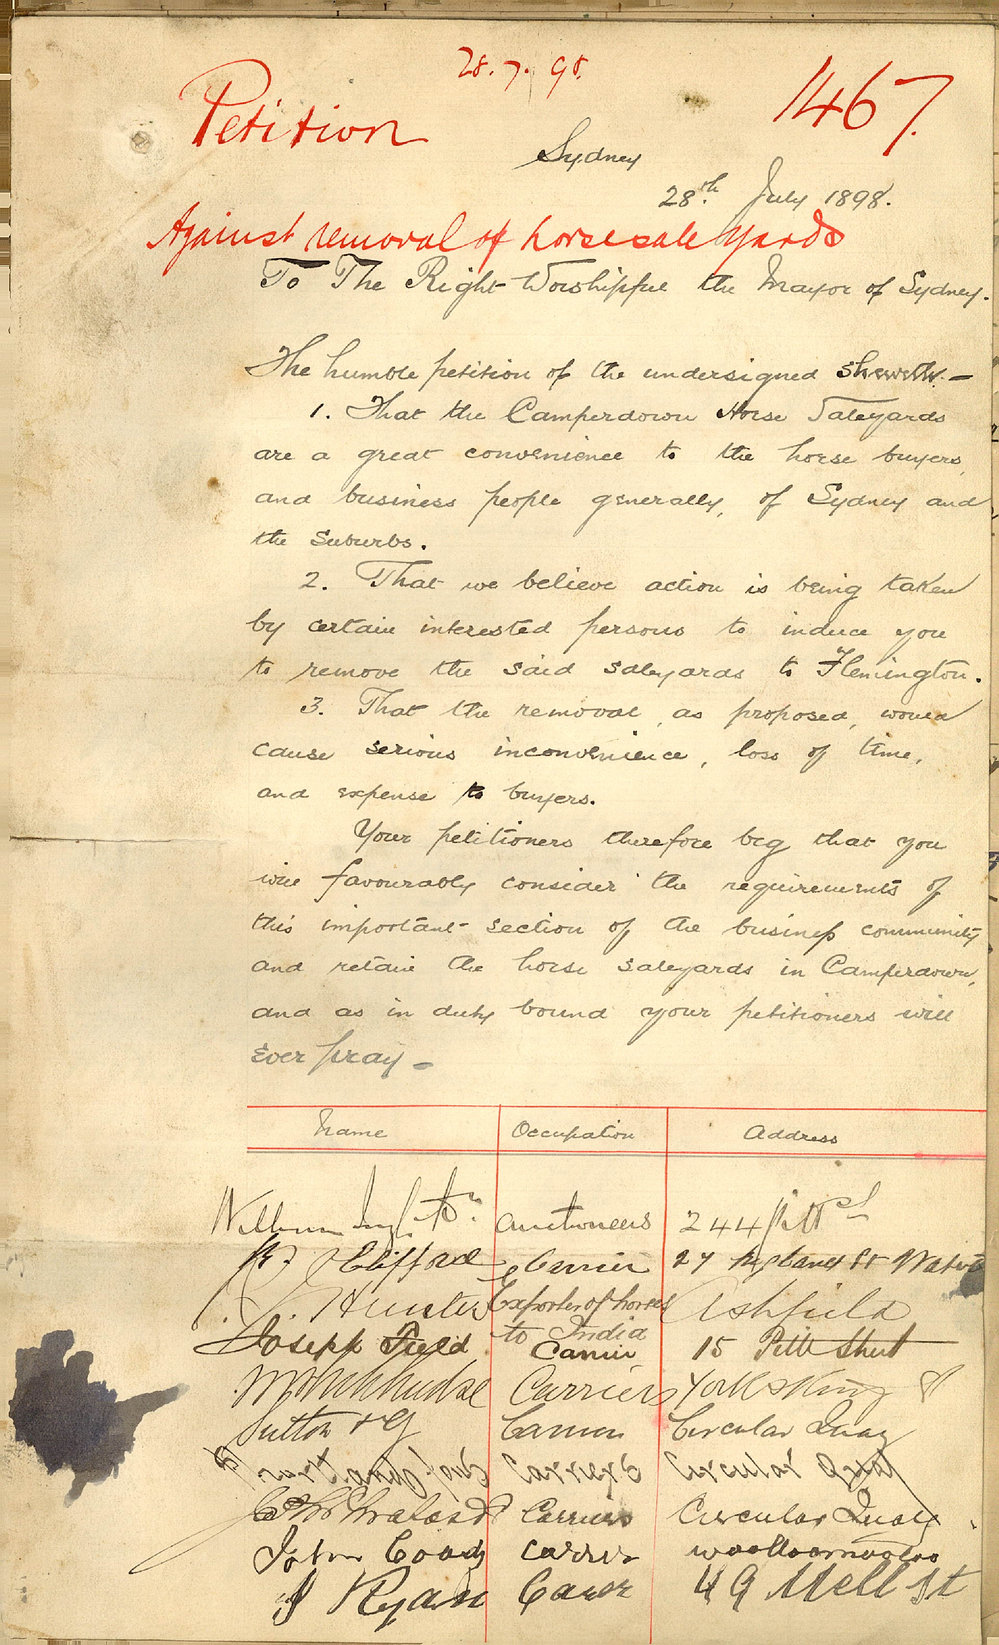 28.7.98.
1467.
Petition
Sydney
28th. July 1898.
Against removal of horse sale yards
To The Right Worshipful the Mayor of Sydney.
The humble petition of the undersigned sheweth.—
1. That the Camperdown Horse Saleyards
are a great convenience to the horse buyers,
and business people generally, of Sydney and
the suburbs.
2. That we believe action is being taken
by certain interested persons to induce you
to remove the said saleyards to Flemington.
3. That the removal, as proposed, would
cause serious inconvenience, loss of time,
and expense to buyers.
Your petitioners therefore beg that you
will favourably consider the requirements of
this important section of the business community
and retain the horse saleyards in Camperdown,
and as in duty bound your petitioners will
ever pray —
Name Occupation Address
William Auctioneers 244 Pitt St
Clifford Carrier 27 St
Hunter Exporter of horses to India Ashfield
Joseph Field Carrier 15 Pitt Street
Carriers York & King St
Sutton & Co Carriers Circular Quay
Circular Quay
Carriers Circular Quay
John Coady Carrier Woolloomooloo
J Ryan 49 St